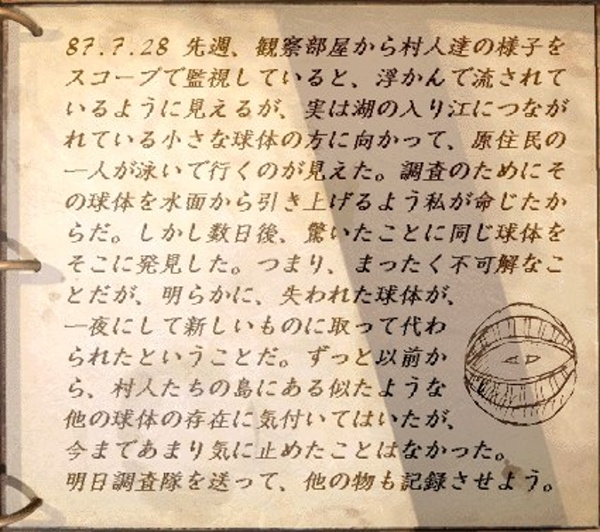 87.7.28 先週、観察部屋から村人達の様子を
スコープで監視していると、浮かんで流されて
いるように見えるが、実は湖の入り江につなが
れている小さな球体の方に向かって、原住民の
一人が泳いで行くのが見えた。調査のためにそ
の球体を水面から引き上げるよう私が命じたか
らだ。しかし数日後、驚いたことに同じ球体を
そこに発見した。つまり、まったく不可解なこ
とだが、明らかに、失われた球体が、
一夜にして新しいものに取って代わ
られたということだ。ずっと以前か
ら、村人たちの島にある似たような
他の球体の存在に気付いてはいたが、
今まであまり気に止めたことはなかった。
明日調査隊を送って、他の物も記録させよう。